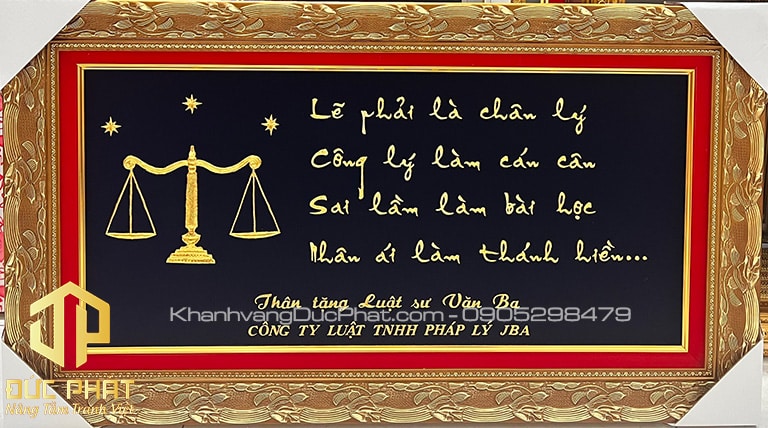 Lẽ phải là chân lý
Công lý làm cán cân
Sai lầm làm bài học
Nhân ái làm thánh hiền...
Thân tặng Luật sư Văn Ba
KhanhvangDucPhat.com - 0905298479
CÔNG TY LUẬT TNHH PHÁP LÝ JBA
ĐỨC PHÁT
Nâng Tầm Tranh Việt